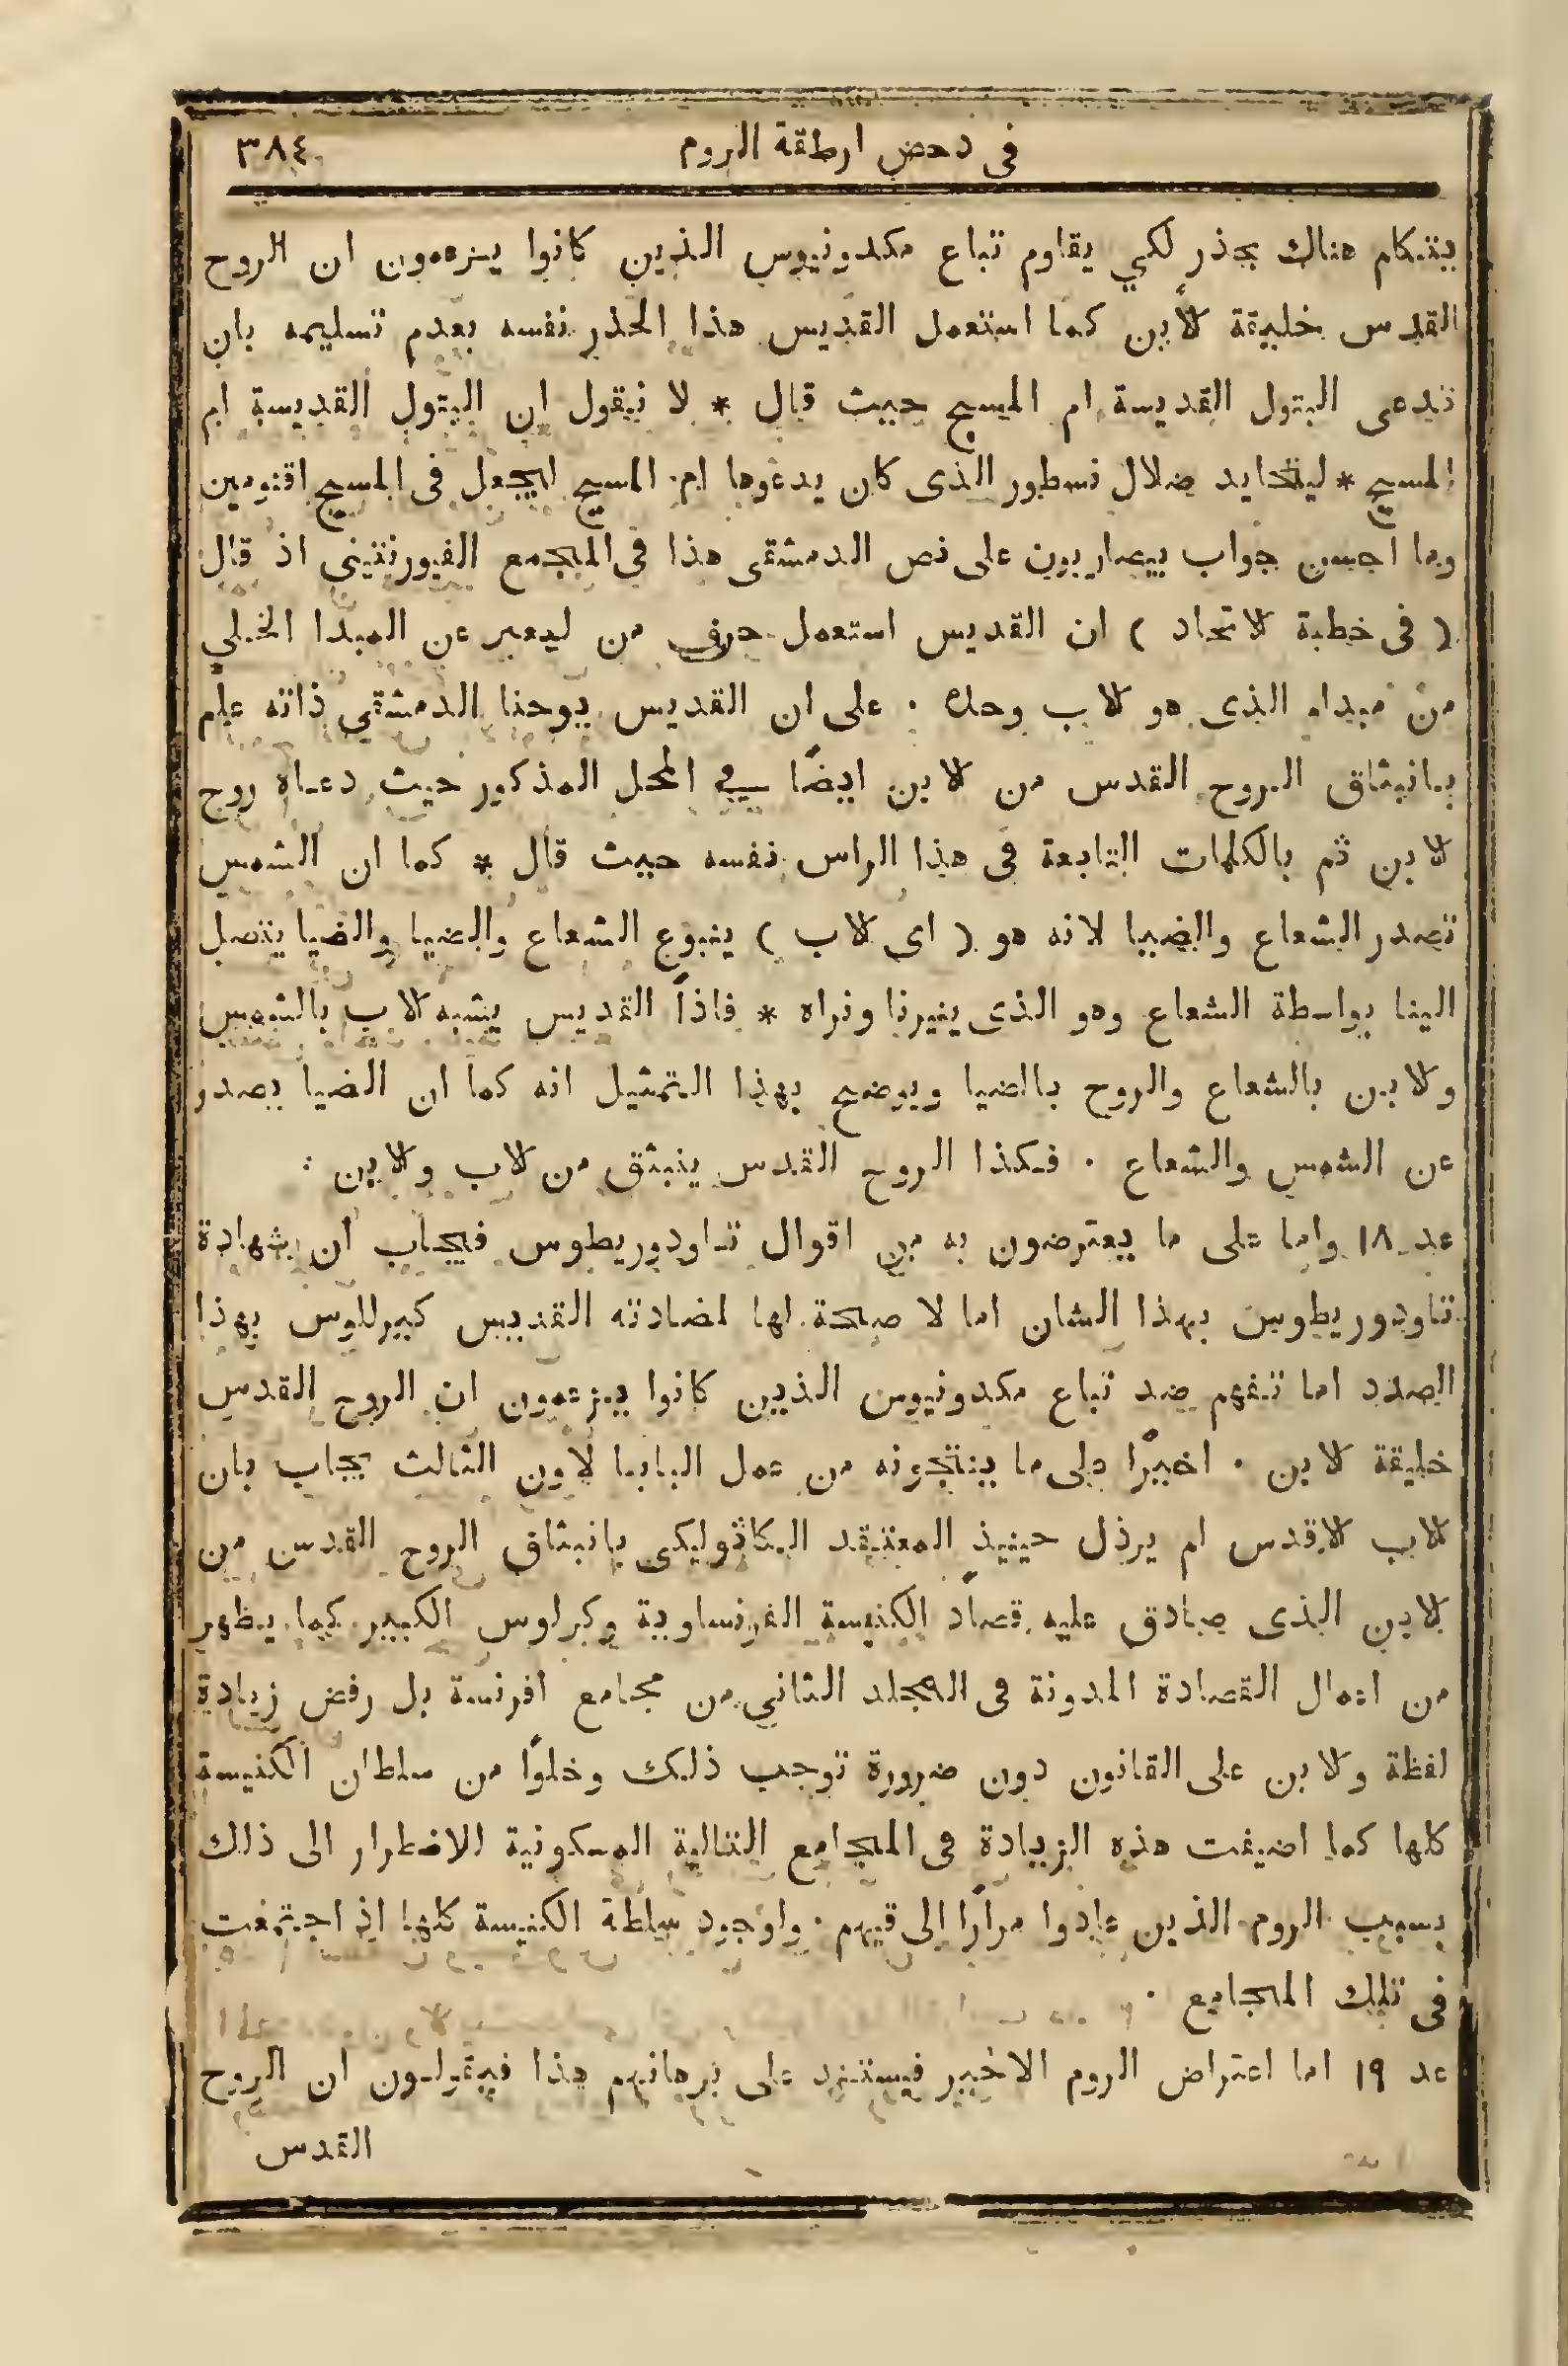 في دحض ارطقة الروم ٣٨٤
يتكلم هناك بحذر لكي يقاوم تباع مكدونيوس الذين كانوا يزعمون ان الروح
القدس خليقة لابن كما استعمل القديس هذا الحذر نفسه بعدم تسليمه بان
تدعى البتول القديسة ام المسيح حيث قال * لا نقول ان البتول القديسة ام
المسيح * ليتحايد ضلال نسطور الذى كان يدعوها ام المسيح ليجعل فى المسيح اقنومين
وما احسن جواب بيصاريون على نص الدمشقى هذا فى المجمع الفيورنتينى اذ قال
( فى خطبة لاتحاد ) ان القديس استعمل حرف من ليعبر عن المبدا الخلي
من مبداء الذى هو لاب وحده . على ان القديس يوحنا الدمشقي ذاته علم
بانبثاق الروح القدس من لابن ايضًا في المحل المذكور حيث دعاه روح
لابن ثم بالكلمات التابعة فى هذا الراس نفسه حيث قال * كما ان الشمس
تصدر الشعاع والضيا لانه هو ( اى لاب ) ينبوع الشعاع والضيا والضيا يتصل
الينا بواسطة الشعاع وهو الذى ينيرنا ونراه * فاذاً القديس يشبه لاب بالشمس
ولابن بالشعاع والروح بالضيا ويوضح بهذا التمثيل انه كما ان الضيا يصدر
عن الشمس والشعاع . فهكذا الروح القدس ينبثق من لاب ولابن :
عد ١٨ واما على ما يعترضون به من اقوال تاودوريطوس فيجاب ان شهادة
تاودوريطوس بهذا الشان اما لا صحة لها لمضادته القديس كيرللوس بهذا
الصدد اما تفهم ضد تباع مكدونيوس الذين كانوا يزعمون ان الروح القدس
خليقة لابن . اخيرًا على ما ينتجونه من عمل البابا لاون الثالث يجاب بان
لاب لاقدس لم يرذل حينيذ المعتقد الكاثوليكى بانبثاق الروح القدس من
لابن الذى صادق عليه قصاد الكنيسة الفرنساوية وكرلوس الكبير كما يظهر
من اعمال القصادة المدونة فى المجلد الثاني من مجامع افرنسة بل رفض زيادة
لفظة ولابن على القانون دون ضرورة توجب ذلك وخلوًا من سلطان الكنيسة
كلها كما اضيفت هذه الزيادة فى المجامع التالية المسكونية الاضطرار الى ذلك
بسبب الروم الذين عادوا مرارًا الى قيهم . ولوجود سلطة الكنيسة كلها اذ اجتمعت
فى تلك المجامع .
عد ١٩ اما اعتراض الروم الاخير فيستند على برهانهم هذا فيقولون ان الروح
القدس